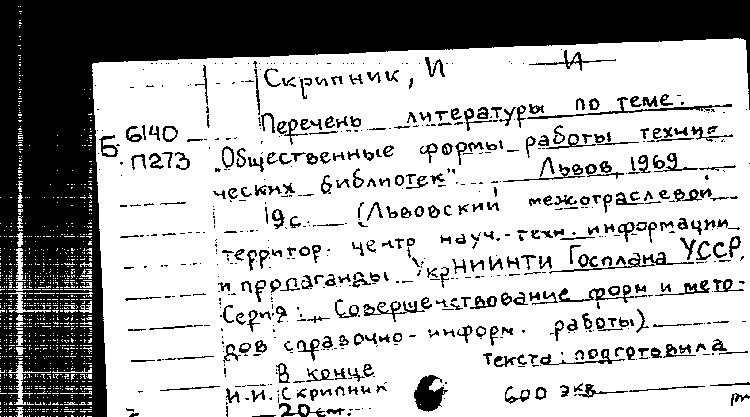 Скрипник, И И
Перечень литературы по теме:
Б 6140
П273
"Общественные формы работы техни=
ческих библиотек". Львов, 1969.
19с. (Львовский межотраслевой
территор. центр науч.-техн. информации
и пропаганды УкрНИИНТИ Госплана УССР.
Серия: "Совершенствование форм и мето=
дов справочно-информ. работы)
В конце текста: подготовила
И.И. Скрипник 600 экз.
20см.